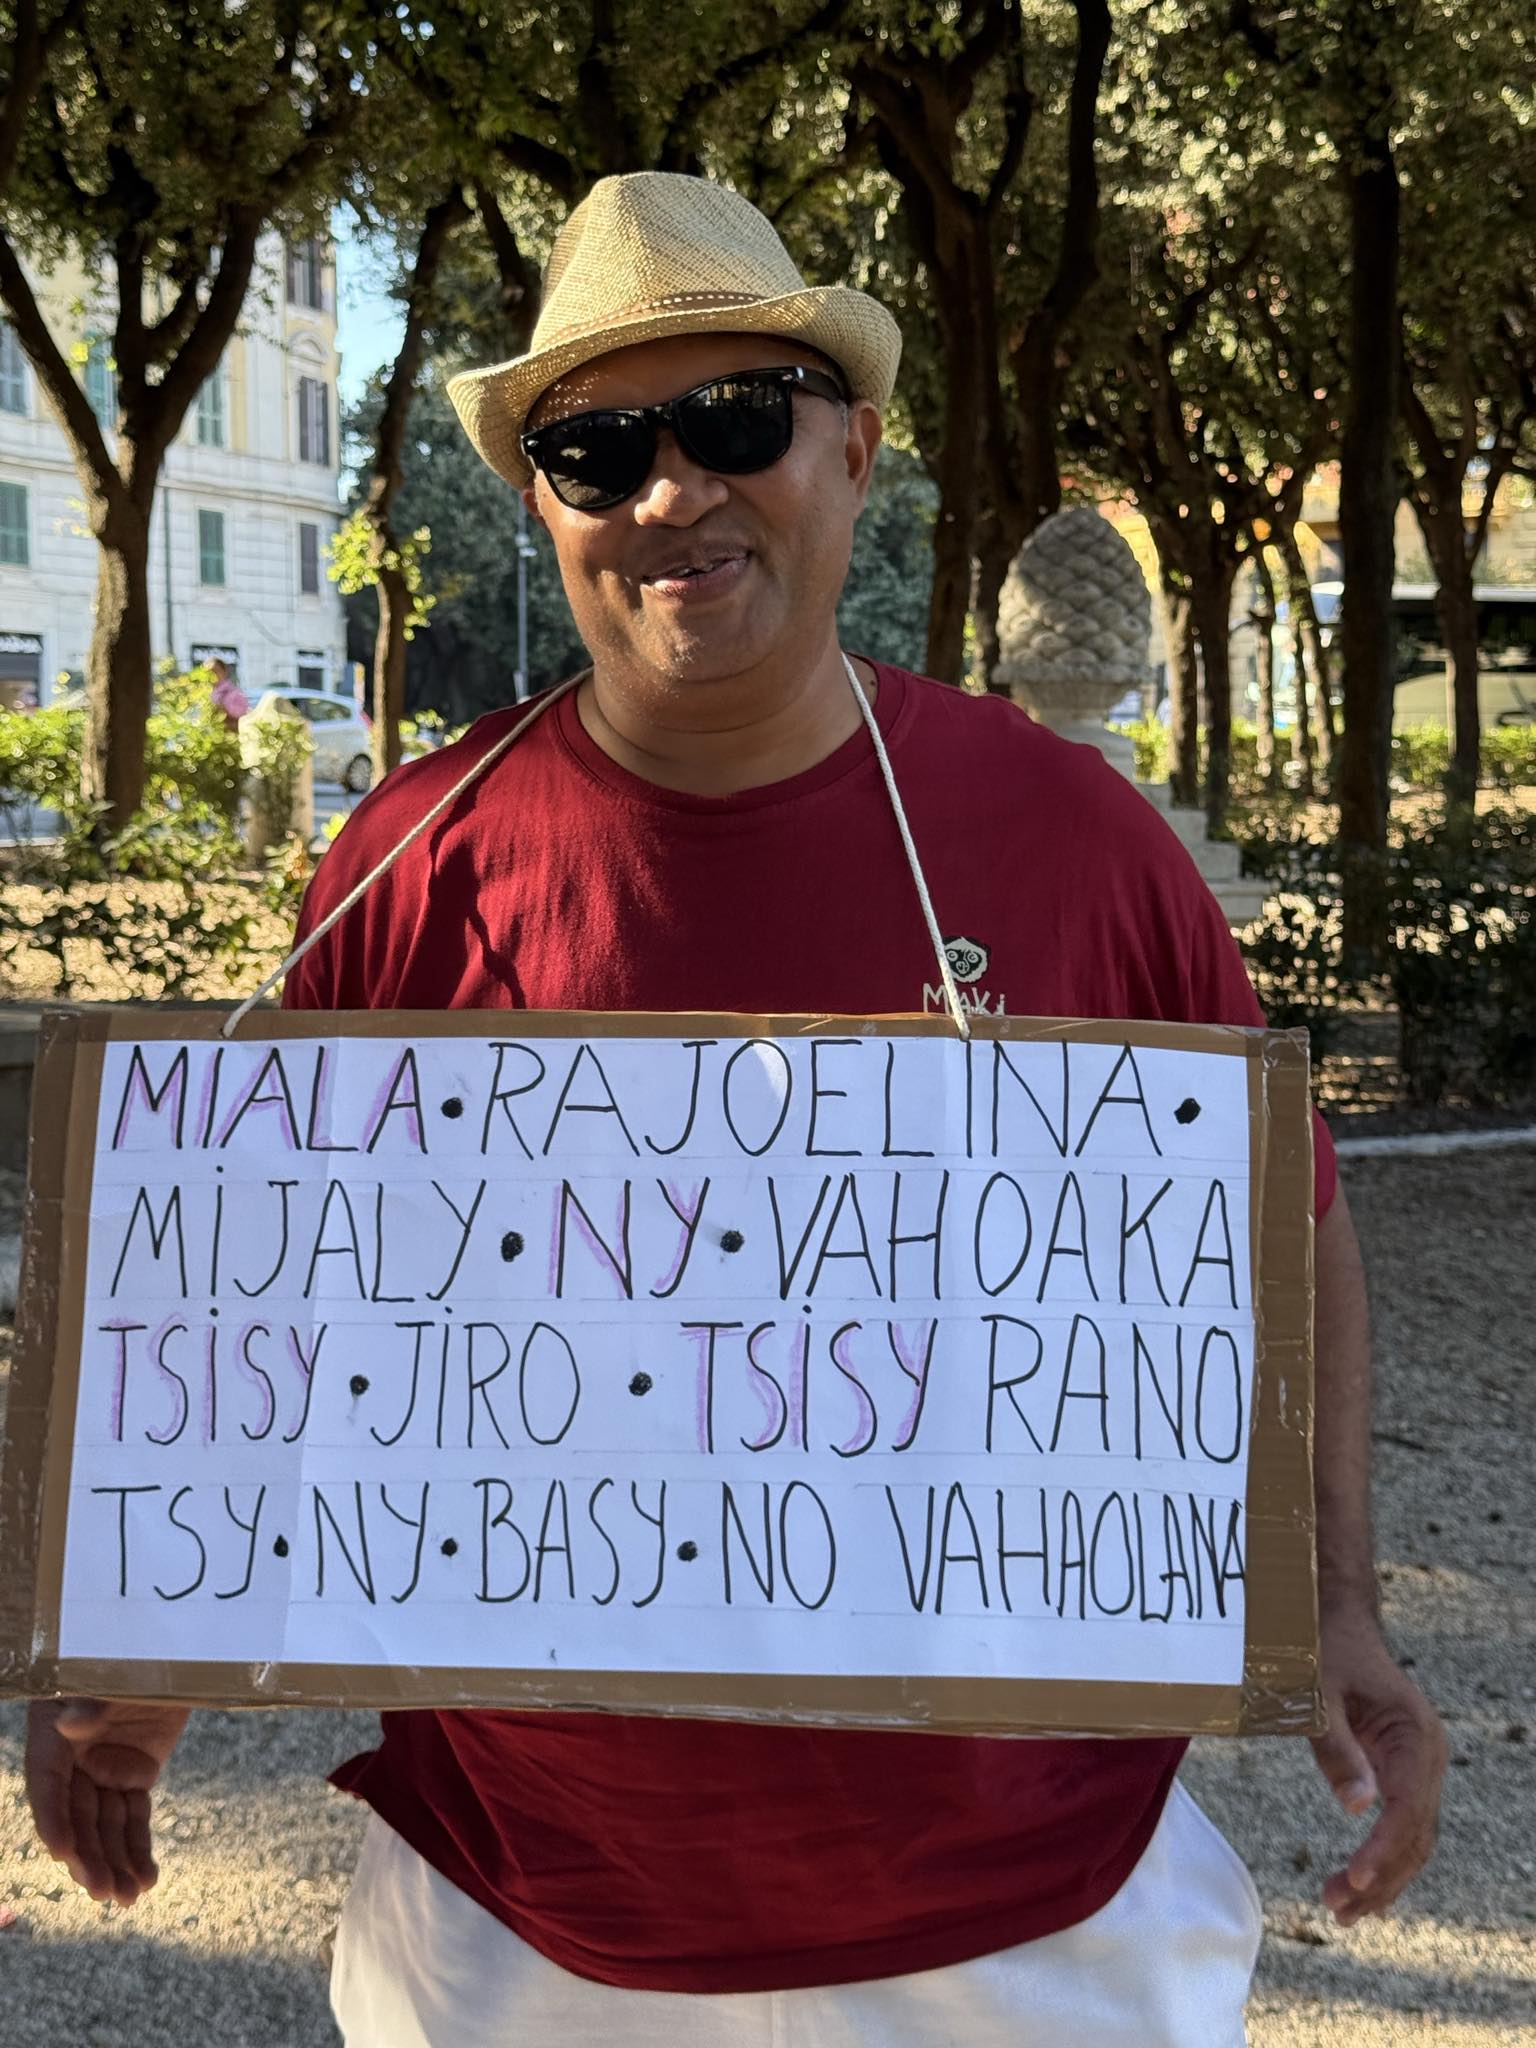 MAKi
MIALA • RAJOELINA •
MiJALY • NY • VAHOAKA
TSiSY • JiRO • TSiSY RANO
TSY • NY • BASY • NO VAHAOLANA